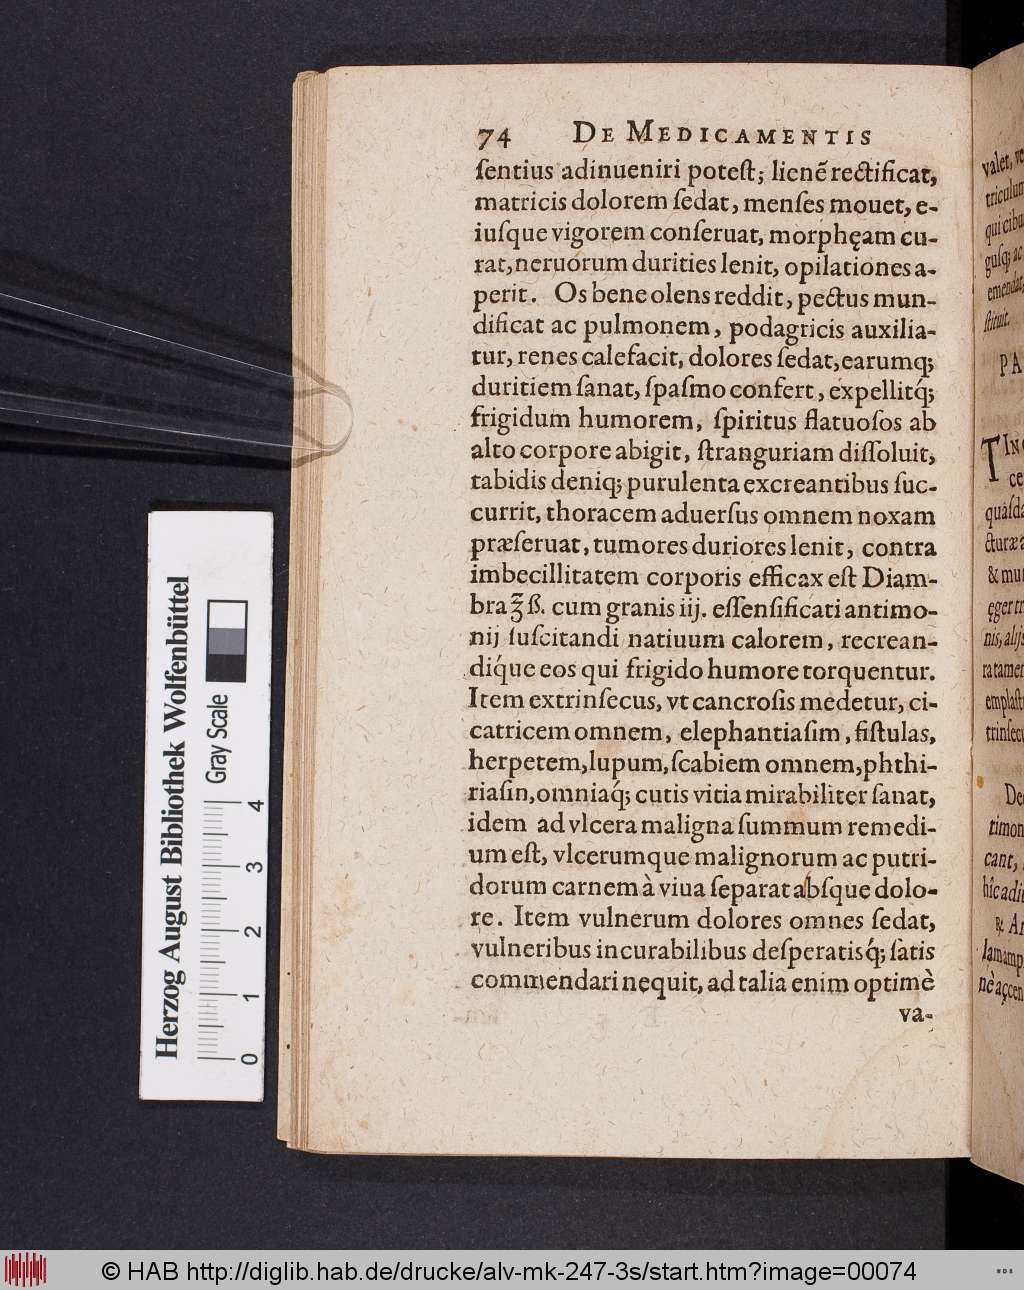 74 DE MEDICAMENTIS
ſentius adinueniri poteſt; lienē rectificat,
matricis dolorem ſedat, menſes mouet, e-
iuſque vigorem conſeruat, morphęam cu-
rat, neruorum durities lenit, opilationes a-
perit. Os bene olens reddit, pectus mun-
dificat ac pulmonem, podagricis auxilia-
tur, renes calefacit, dolores ſedat, earumq;
duritiem ſanat, ſpaſmo confert, expellitq́;
frigidum humorem, ſpiritus flatuoſos ab
alto corpore abigit, ſtranguriam diſſoluit,
tabidis deniq; purulenta excreantibus ſuc-
currit, thoracem aduerſus omnem noxam
præſeruat, tumores duriores lenit, contra
imbecillitatem corporis efficax eſt Diam-
bra ℥ ß. cum granis iij. eſſenſificati antimo-
nij ſuſcitandi natiuum calorem, recrean-
diq́ue eos qui frigido humore torquentur.
Item extrinſecus, vt cancroſis medetur, ci-
catricem omnem, elephantiaſim, fiſtulas,
herpetem, lupum, ſcabiem omnem, phthi-
riaſin, omniaq́; cutis vitia mirabiliter ſanat,
idem ad vlcera maligna ſummum remedi-
um eſt, vlcerumque malignorum ac putri-
dorum carnem à viua ſeparat abſque dolo-
re. Item vulnerum dolores omnes ſedat,
vulneribus incurabilibus deſperatisq́; ſatis
commendari nequit, ad talia enim optimè
va-
valet, ve
triculum
qui cibu
guſq; ac
emendat,
ſtituit.
PA
TINC
ce
quàſda
cturæ a
& mu
ęger tr
nis, alijs
ra tamen
emplaſt
trinſecu
De
timon
cant,
hîc adi
& Ar
lam amp
nè accen
Herzog August Bibliothek Wolfenbüttel
Gray Scale
0 1 2 3 4
© HAB http://diglib.hab.de/drucke/alv-mk-247-3s/start.htm?image=00074